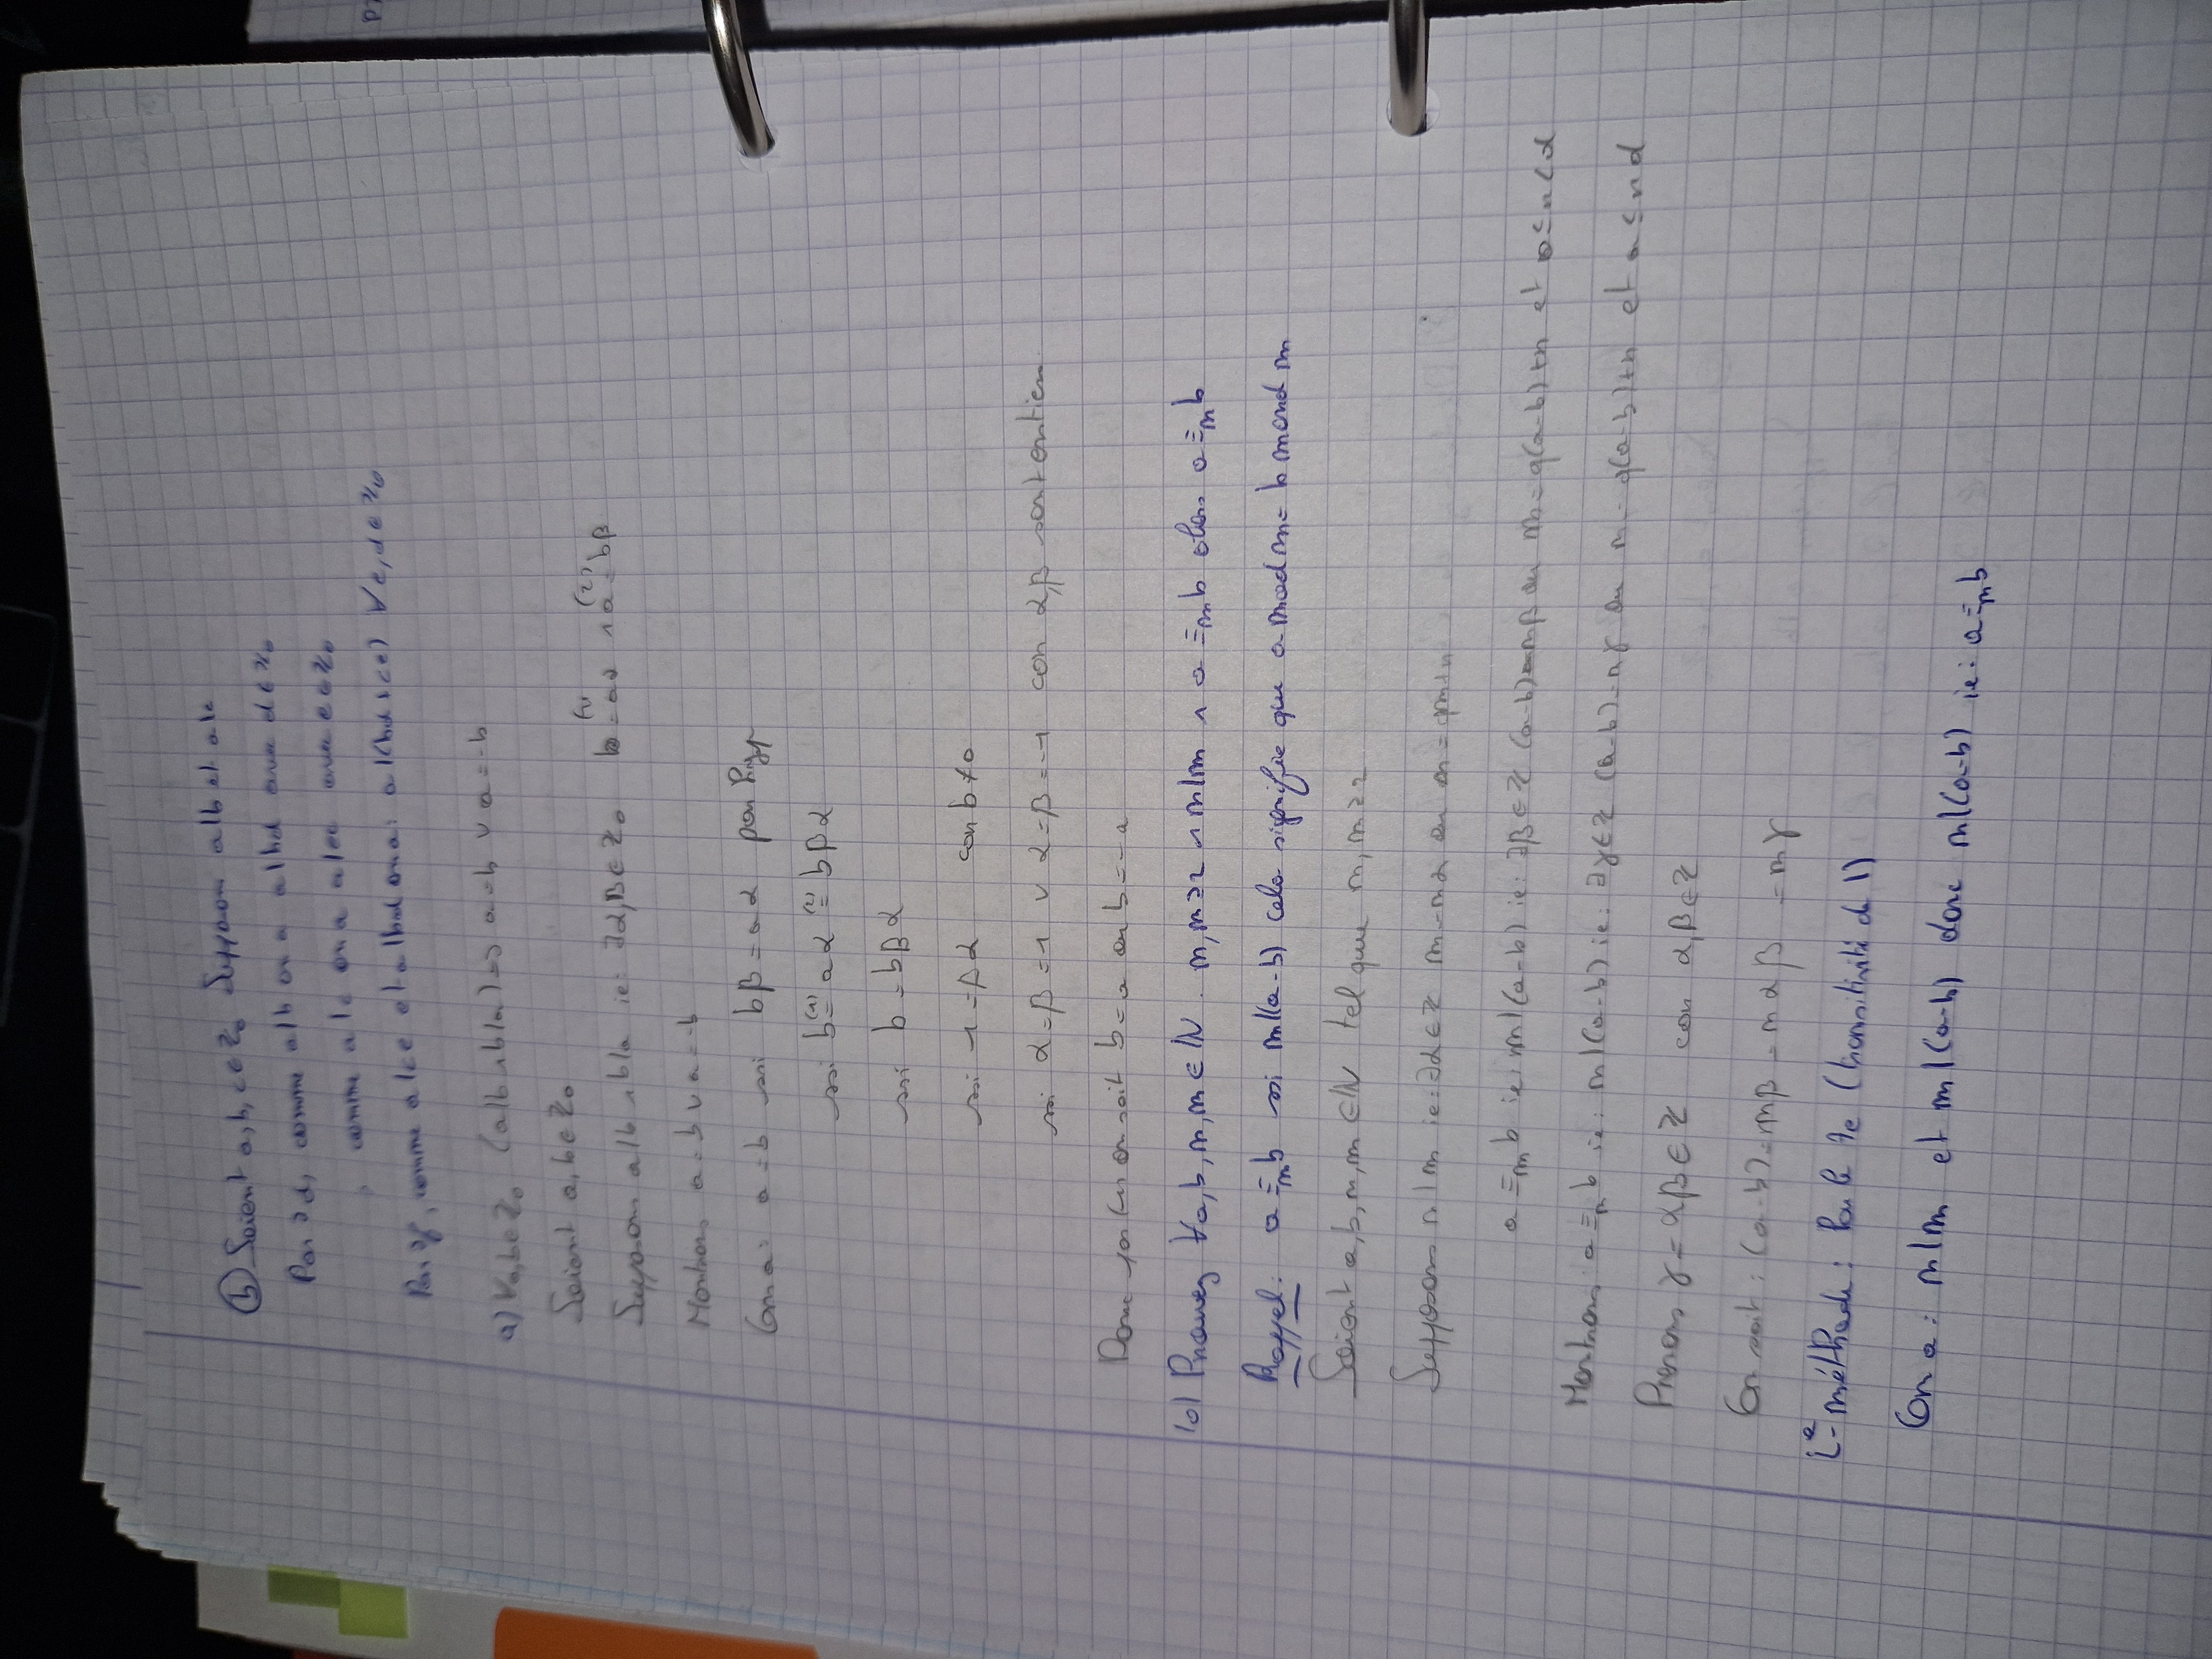 (b) Soient a, b, c ∈ ℤ₀ Supposons a|b et a|c
Par 7d, comme a|b on a a|bd avec d ∈ ℤ₀
, comme a|c on a a|ec avec e ∈ ℤ₀
Par 7f, comme a|ce et a|bd on a: a|(bd+ce) ∀e,d ∈ ℤ₀
a) ∀a,b∈ℤ₀ (a|b ∧ b|a) => a=b ∨ a=-b
Soient a, b ∈ ℤ₀
Supposons a|b ∧ b|a ie: ∃α,β ∈ ℤ₀ b (1)= aα ∧ a (2)= bβ
Montrons a=b ∨ a=-b
On a: a=b ssi bβ = aα par hyp
ssi b (1)= aα (2)= bβα
ssi b = bβα
ssi 1 = βα car b≠0
ssi α=β=1 ∨ α=β=-1 car α,β sont entiers
Donc par (1) on sait b=a ou b=-a
10) Prouvez ∀a,b,n,m ∈ ℕ. n,m ≥2 ∧ n|m ∧ a ≡ₘ b alors a ≡ₙ b
Rappel: a ≡ₘ b ssi m|(a-b) cela signifie que a mod m = b mond m
Soient a,b,n,m ∈ ℕ tel que n, m ≥ 2
Supposons n|m ie: ∃α∈ℤ m=nα ou n = qm+r
a ≡ₘ b ie: m|(a-b) ie: ∃β∈ℤ (a-b)=mβ ou m = q(a-b)+r et 0≤r<d
Montrons a ≡ₙ b ie: n|(a-b) ie: ∃γ∈ℤ (a-b)=nγ ou n = q(a-b)+r et 0≤r d
Prenons γ = αβ ∈ ℤ car α,β ∈ ℤ
On sait: (a-b)=mβ = nαβ = nγ
2e méthode: Par le 7e (transitivité de |)
On a: n|m et m|(a-b) donc n|(a-b) ie: a ≡ₙ b